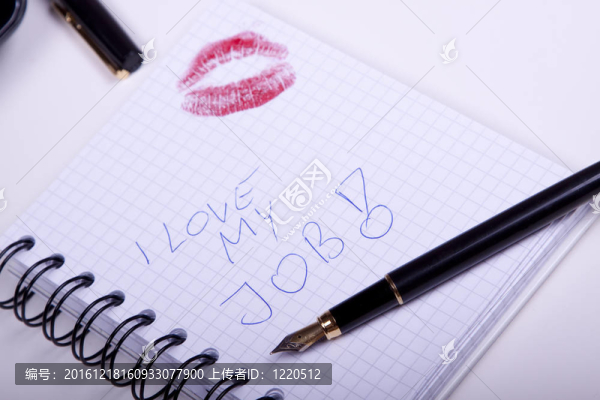 I LOVE
MY
JOB!
图
编号：20161218160933077900 上传者ID：1220512